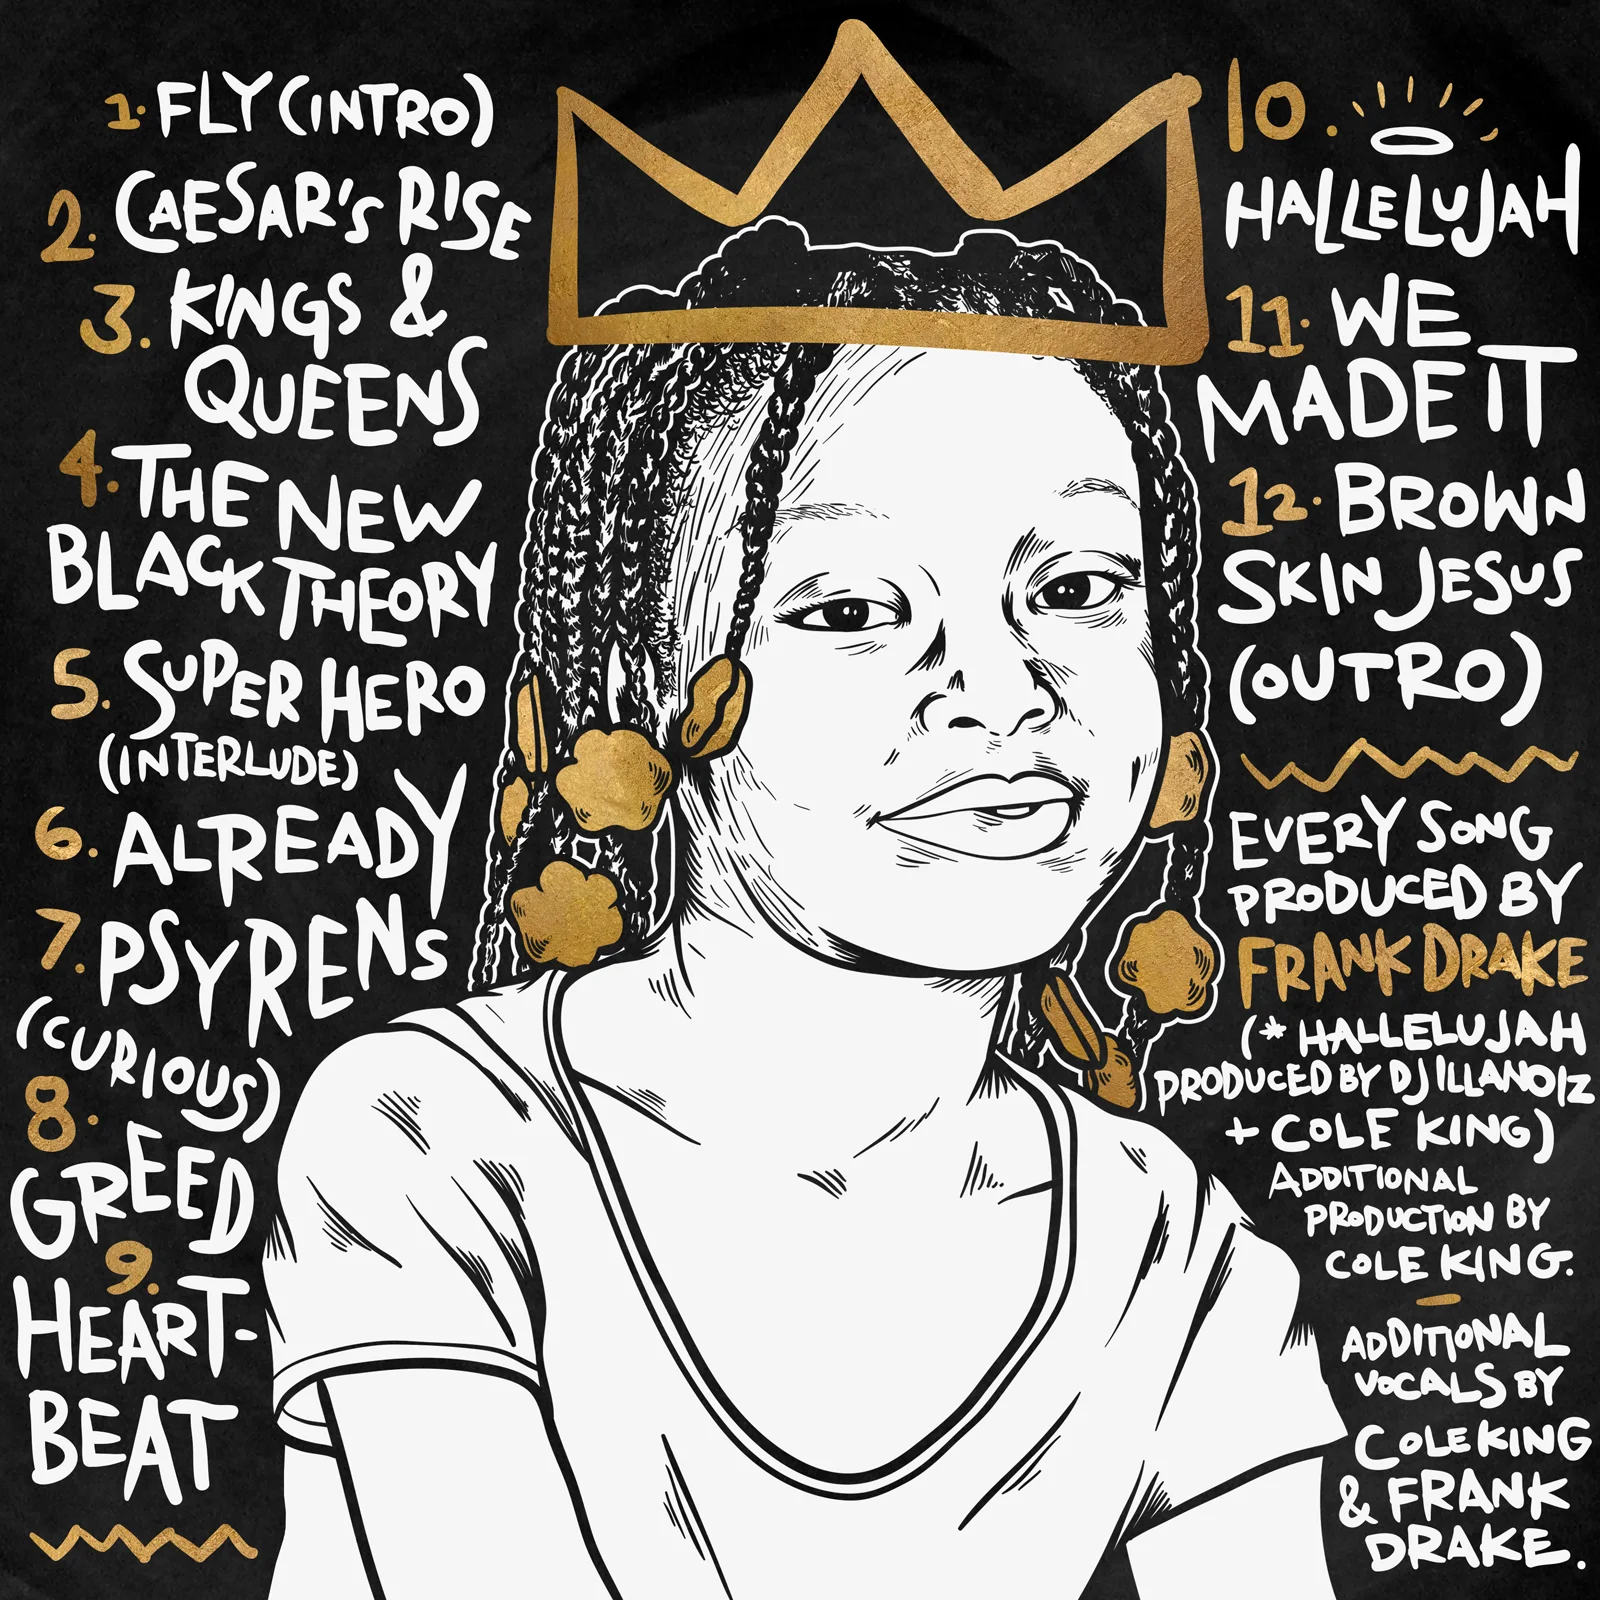 1. FLY (INTRO)
2. CAESAR'S RISE
3. KINGS &
QUEENS
4. THE NEW
BLACK THEORY
5. SUPER HERO
(INTERLUDE)
6. ALREADY
7. PSYRENS
(CURIOUS)
8.
GREED
9.
HEART-
BEAT
10.
HALLELUJAH
11. WE
MADE IT
12. BROWN
SKIN JESUS
(OUTRO)
EVERY SONG
PRODUCED BY
FRANK DRAKE
(* HALLELUJAH
PRODUCED BY DJ ILLANOIZ
+ COLE KING)
ADDITIONAL
PRODUCTION BY
COLE KING.
-
ADDITIONAL
VOCALS BY
COLE KING
& FRANK
DRAKE.